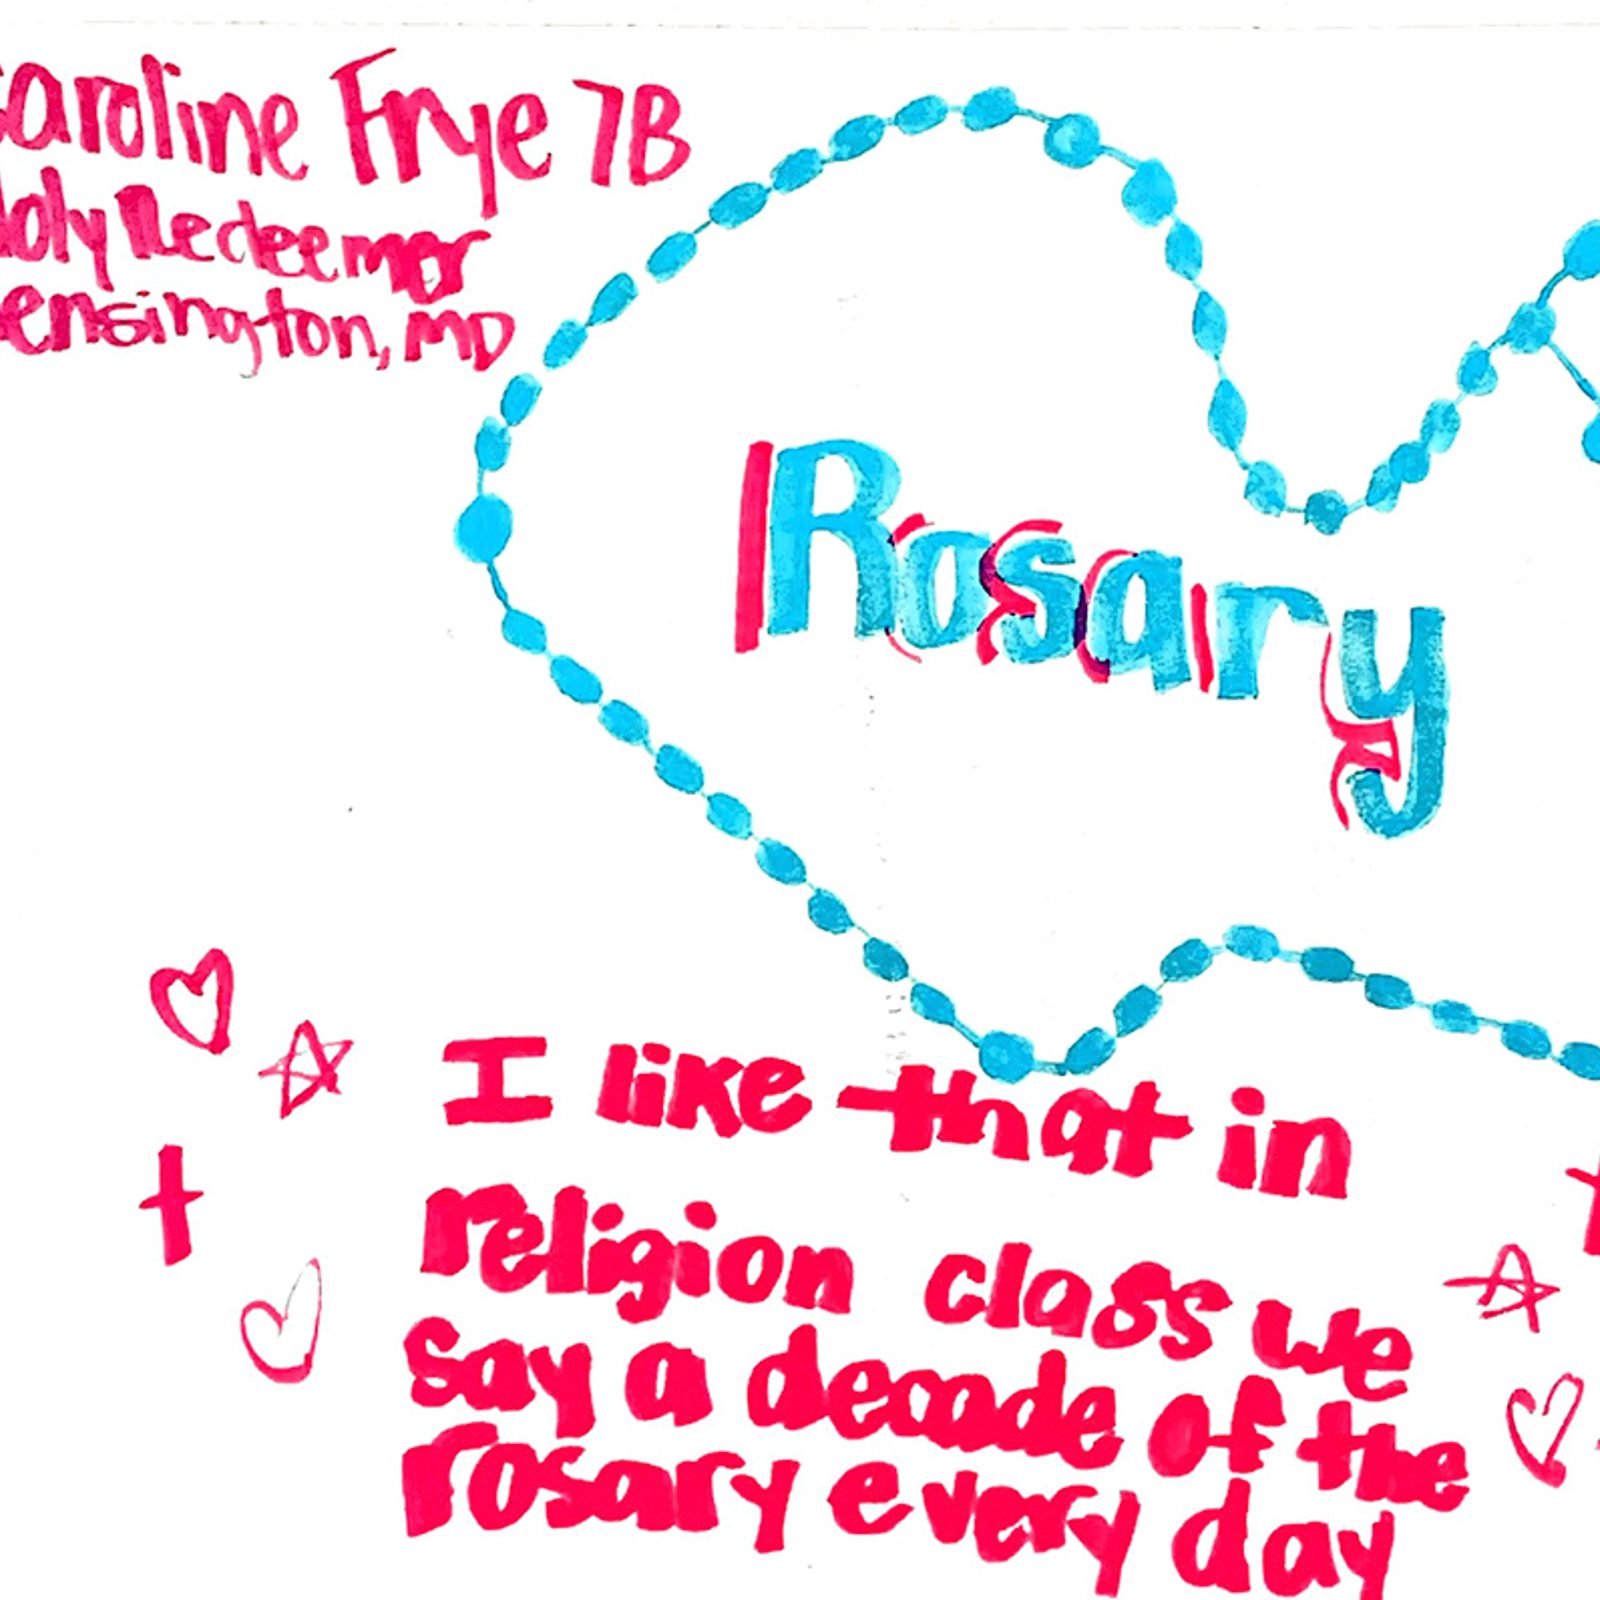 Caroline Frye 7B
Holy Redeemer
Kensington, MD
Rosary
I like that in
religion class we
say a decade of the
rosary every day